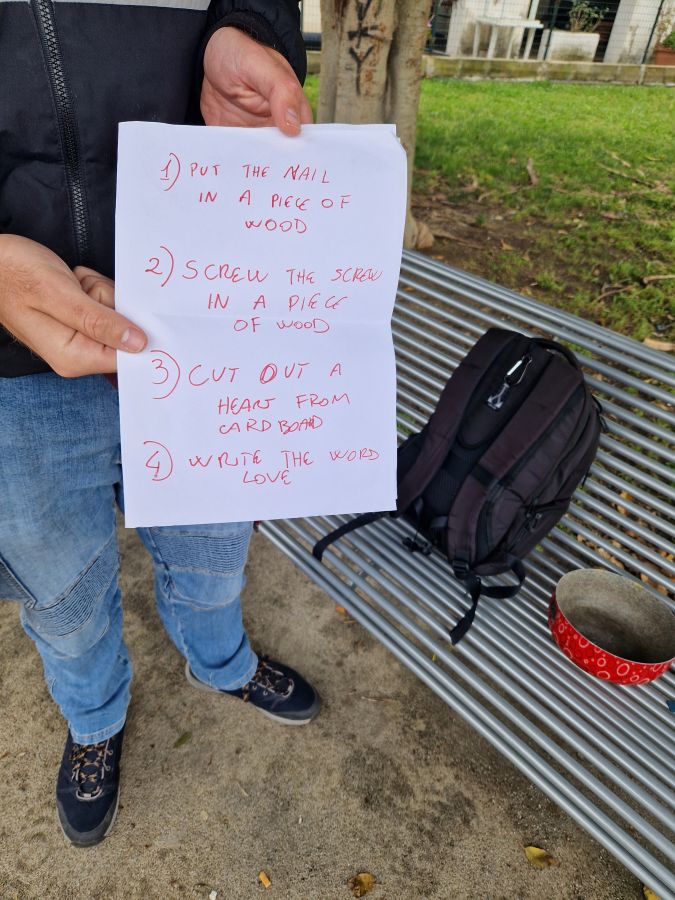 1) PUT THE NAIL
IN A PIECE OF
WOOD
2) SCREW THE SCREW
IN A PIECE
OF WOOD
3) CUT OUT A
HEART FROM
CARDBOARD
4) WRITE THE WORD
LOVE